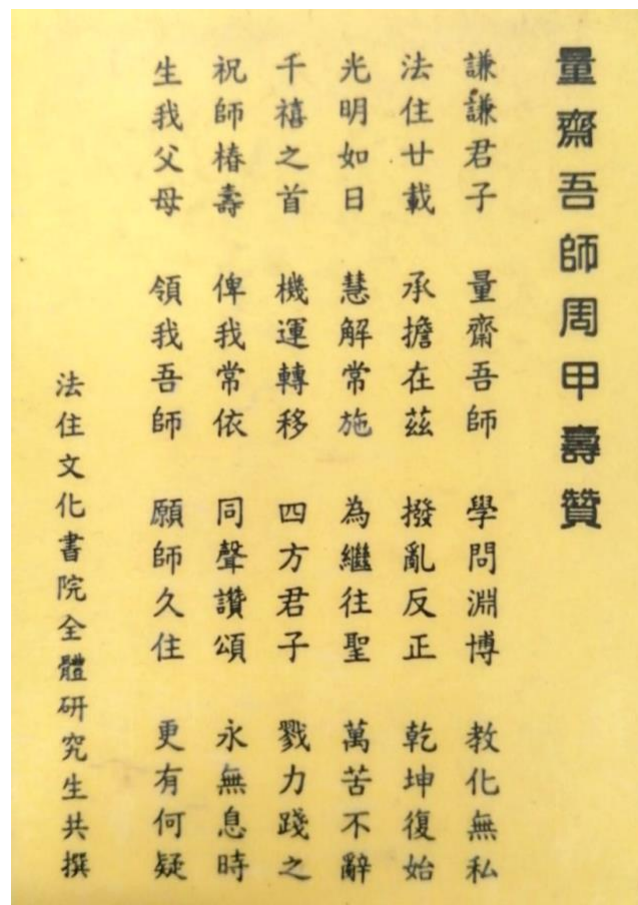 量齋吾師周甲壽贊
謙謙君子 量齋吾師 學問淵博 教化無私
法住廿載 承擔在茲 撥亂反正 乾坤復始
光明如日 慧解常施 為繼往聖 萬苦不辭
千禧之首 機運轉移 四方君子 戮力踐之
祝師椿壽 俾我常依 同聲讚頌 永無息時
生我父母 領我吾師 願師久住 更有何疑
法住文化書院全體研究生共撰